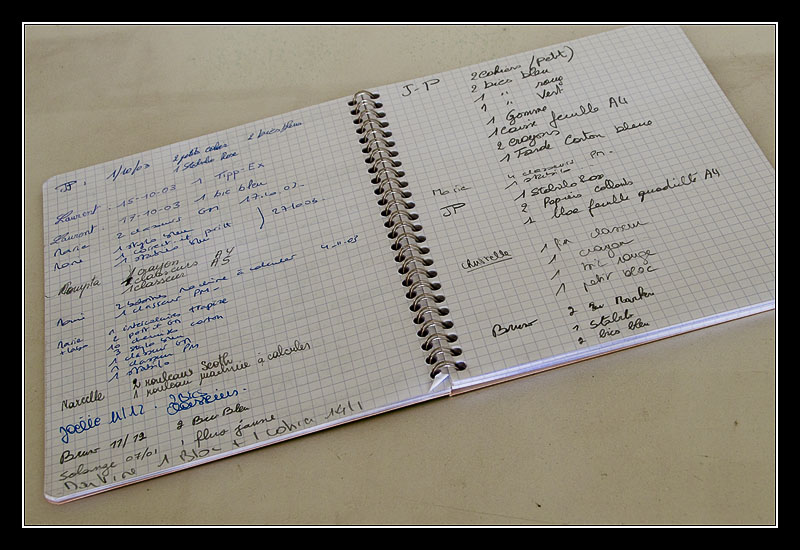 JP : 1/10/03 2 petits cahiers 2 bics bleu
1 Stabilo Rose
Laurent. 15-10-03 1 Tipp-Ex
Laurent. 17-10-03 1 bic bleu
Marie 2 classeurs GM 17.10.03
1 stylo bleu
1 stabilo bleu
27.10.03.
1 crayon
classeurs A4
1 classeur A5
à calculer 4-11-03
1 classeur PM.
1 intercalaire
carton
3 stylo bleu
1 classeur GM
1 classeur PM
1 stabilo
Marcelle 2 rouleaux Scoth
1 rouleau machine à calculer
Joëlle 11/12 : 2 Bics
classeurs.
Bruno 17/12 2 Bics Bleu
Solange 07/01 1 fluo jaune
1 Bloc + 1 Cahier 14/1
J-P 2 Cahiers (petit)
2 bics bleu
1 " rouge
1 " Vert
1 Gomme
feuille A4
2 crayons
1 Farde Carton bleue
Marie 4 classeurs PM.
1 stabilo
JP 1 Stabilo Rose
2 Papiers collants
1 bloc feuille quadrillé A4
Christelle classeur
1 crayon
1 bic rouge
1 petit bloc
Bruno 2
1 Stabilo
2 bics bleu